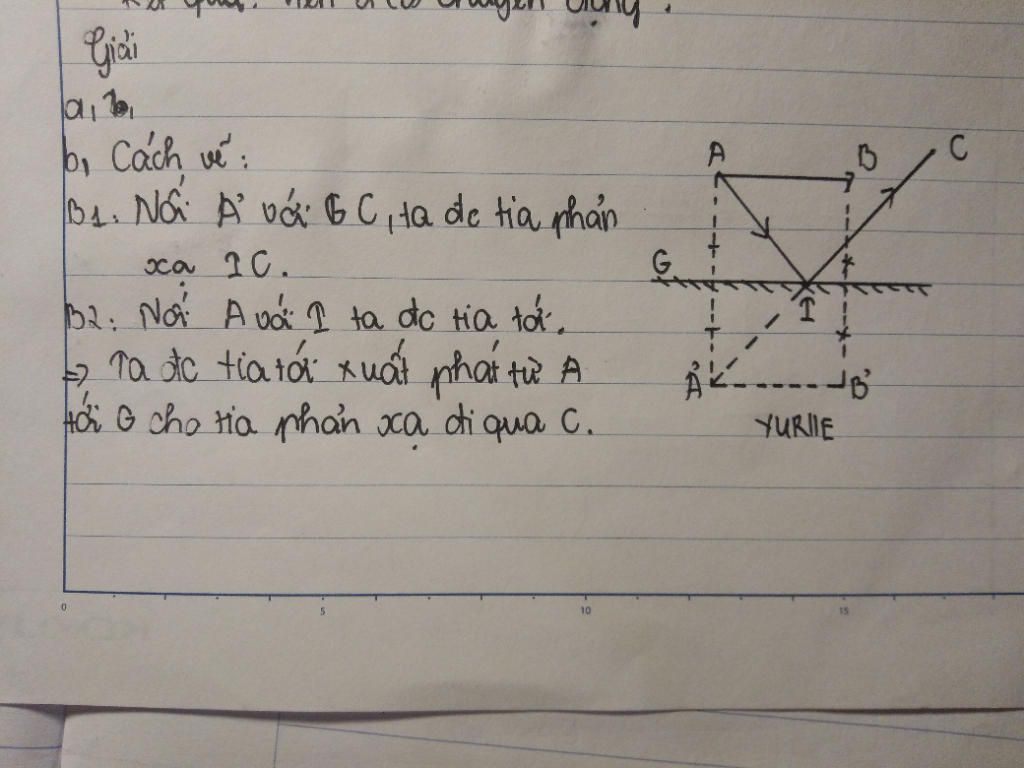 Kết quả: nên ô tô chuyển động.
Giải
a,
b, Cách vẽ:
B1: Nối A' với C, ta đc tia phản
xạ IC.
B2: Nối A với I ta đc tia tới.
=> Ta đc tia tới xuất phát từ A
tới G cho tia phản xạ đi qua C.
A B C
G
I
A' B'
YURIIE
0 5 10 15